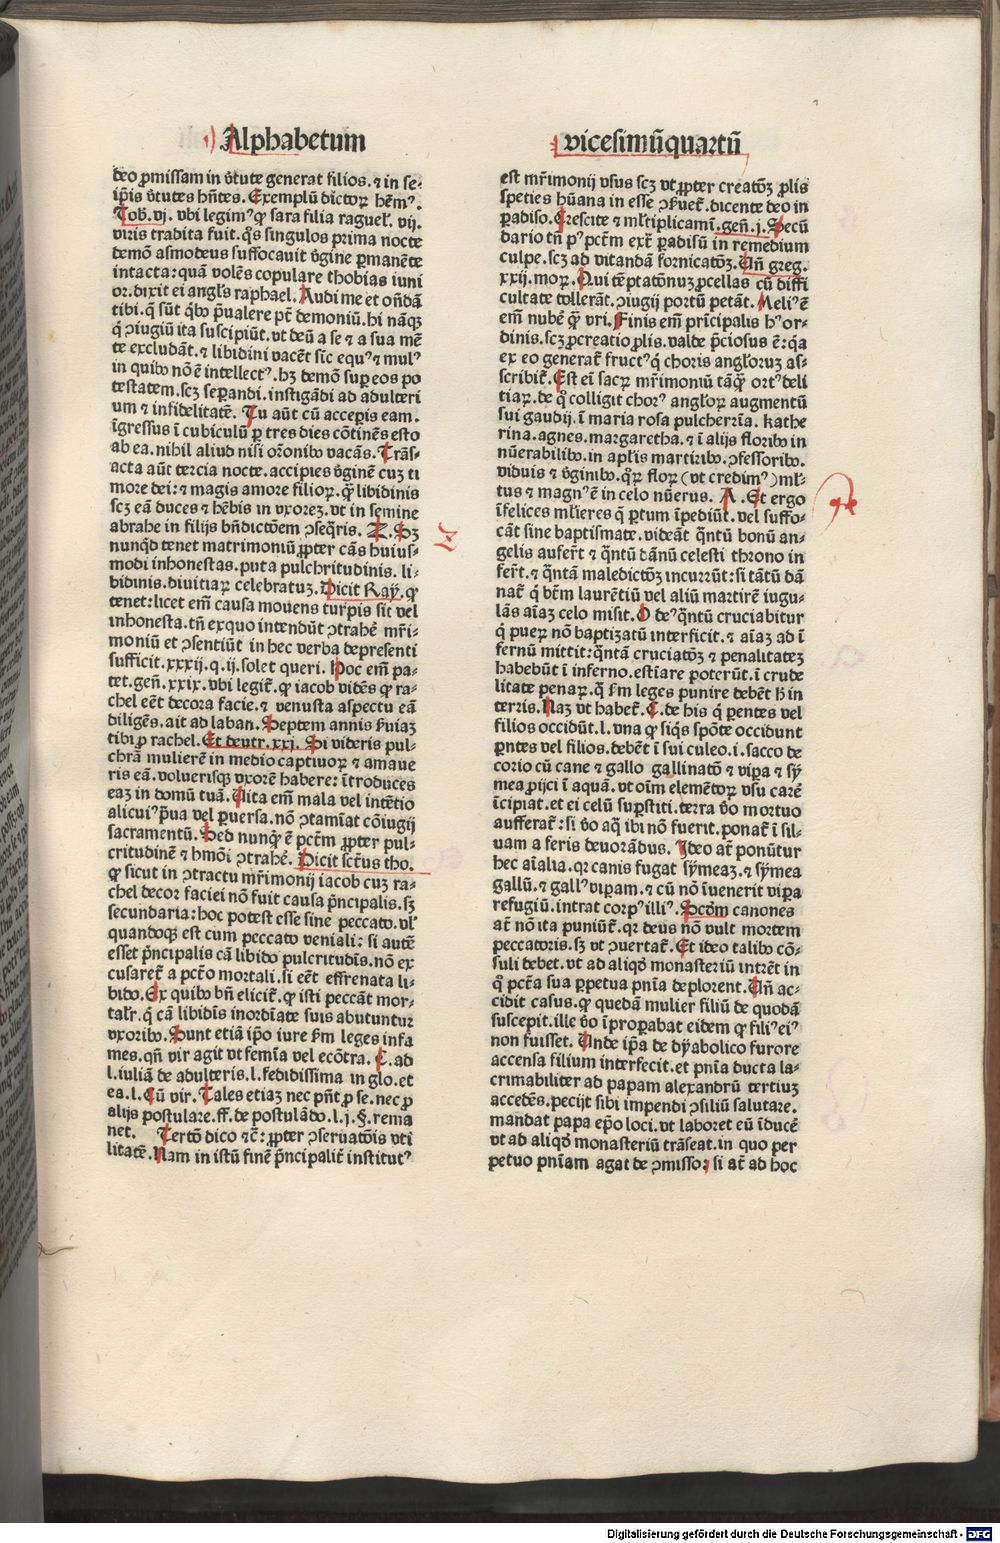 Alphabetum
vicesimũquartũ
deo ꝓmissam in v̾tute generat filios. ⁊ in se⸗
ip̃is v̾tutes hñtes. Exemplũ dictoꝝ hẽmꝰ.
Tob̃. vj. vbi legimꝰ ꝙ sara filia raguel̃. vij.
viris tradita fuit. q̃s singulos prima nocte
demõ asmodeus suffocauit v̾gine ꝑmanẽte
intacta: quã volẽs copulare thobias iuni
or. dixit ei angl̃s raphael. Audi me et oñdã
tibi. q̃ sũt q̃bꝰ p̃ualere pt̃ demoniũ. hi nãqꝫ
q̃ ꝯiugiũ ita suscipiũt. vt deũ a se ⁊ a sua mẽ
te excludãt. ⁊ libidini vacẽt sic̃ equꝰ ⁊ mulꝰ
in quibꝰ nõ ẽ intellectꝰ. hꝫ demõ suꝑ eos po
testatem. scꝫ seꝑandi. instigãdi ad adulteri
um ⁊ infidelitatẽ. Tu aũt cũ acceꝑis eam.
ĩgressus ĩ cubiculũ ꝑ tres dies cõtinẽs esto
ab ea. nihil aliud nisi or̃onibꝰ vacãs. Trãs⸗
acta aũt tercia nocte. accipies v̾ginẽ cuꝫ ti
more dei: ⁊ magis amore filioꝝ. q̃ꝫ libidinis
scꝫ eã duces ⁊ hẽbis in vxorez. vt in semine
abrahe in filijs bñdictõem ꝯseq̃ris. Z. Sꝫ
nunqd̃ tenet matrimoniũ ꝓpter cãs huius⸗
modi inhonestas. puta pulchritudinis. li⸗
bidinis. diuitiaꝝ celebratuꝫ. Dicit Raẏ. ꝙ
tenet: licet em̃ causa mouens turpis sit vel
inhonesta. tñ exquo intendũt ꝯtrahe̾ mr̃i⸗
moniũ et ꝯsentiũt in hec verba de presenti
sufficit. xxxij. q. ij. solet queri. Hoc em̃ pa⸗
tet. geñ. xxix. vbi legit̃. ꝙ iacob vidẽs ꝙ ra⸗
chel eẽt decora facie. ⁊ venusta aspectu eã
diligẽs. ait ad laban. Septem annis s̾uiaꝫ
tibi ꝓ rachel. Et deutr̃. xxj. Si videris pul⸗
chrã mulierẽ in medio captiuoꝝ ⁊ amaue
ris eã. voluerisqꝫ vxorẽ habere: ĩtroduces
eaꝫ in domũ tuã. Vlita em̃ mala vel intẽtio
alicuiꝰ p̃ua vel ꝑuersa. nõ ꝯtamiãt cõiugij
sacramentũ. Sed nunqd̃ ẽ pctm̃ ꝓpter pul⸗
critudinẽ ⁊ hmõi ꝯtrahe̾. Dicit sct̃us tho.
ꝙ sicut in ꝯtractu mr̃imonij iacob cuꝫ ra⸗
chel decor faciei nõ fuit causa p̃ncipalis. sꝫ
secundaria: hoc potest esse sine peccato. vl̃
quandoqꝫ est cum peccato veniali: si autẽ
esset p̃ncipalis cã libido pulcritudĩs. nõ ex
cusaret̃ a pctõ mortali. si eẽt effrenata li⸗
bido. Ex quibꝰ bñ elicit̃. ꝙ isti peccãt mor⸗
tal̃r. q̃ cã libidĩs inordĩate suis abutuntur
vxoribꝰ. Sunt etiã ip̃o iure s̾m leges infa
mes. qñ vir agit vt femĩa vel ecõtra. C. ad
l. iuliã de adulteris. l. fedidissima in glo. et
ea. l. Cũ vir. Tales etiaꝫ nec pñt ꝓ se. nec ꝓ
alijs postulare. ff. de postulãdo. l. j. §. rema
net. Tertõ dico ⁊c̃: ꝓpter ꝯseruatõis vti
litatẽ. Nam in istũ finẽ p̃ncipalit̃ institutꝰ
est mr̃imonij vsus scꝫ vt ꝓpter creatõꝫ ꝓlis
speties hũana in esse ꝯs̾uet̃. dicente deo in
ꝑadiso. Crescite ⁊ ml̃tiplicamĩ. geñ. j. Secũ
dario tñ pꝰ pctm̃ extr̃ ꝑadisũ in remedium
culpe. scꝫ ad vitandã fornicatõꝫ. Uñ greg.
xxij. moꝝ. Qui tẽptatõnuꝫ ꝓcellas cũ diffi
cultate tollerãt. ꝯiugij portũ petãt. Meliꝰ ẽ
em̃ nube̾ q̃ꝫ vri. Finis em̃ prĩcipalis hꝰ or⸗
dinis. scꝫ ꝓcreatio ꝓlis. valde p̃ciosus ẽ: q̃a
ex eo generat̃ fructꝰ q̃ choris angl̃oruꝫ as⸗
scribit̃. Est ei̾ sacꝝ mr̃imoniũ tãq̃ꝫ ortꝰ deli
tiaꝝ. de q̃ colligit chorꝰ angl̃oꝝ augmentũ
sui gaudij. ĩ maria rosa pulcherrĩa. kathe
rina. agnes. margaretha. ⁊ ĩ alijs floribꝰ in
nũerabilibꝰ. in apl̃is martiribꝰ. ꝯfessoribꝰ.
viduis ⁊ v̾ginibꝰ. q̃ꝝ floꝝ (vt credimꝰ) ml̃⸗
tus ⁊ magnꝰ ẽ in celo nũerus. A. Et ergo
ĩfelices ml̃ieres q̃ ꝑtum ĩpediũt. vel suffo⸗
cãt sine baptismate. videãt q̃ntũ bonũ an⸗
gelis aufer̃t ⁊ q̃ntũ dãnũ celesti throno in
fer̃t. ⁊ q̃ntã maledictõꝫ incurrũt: si tãtũ dã
nat̃ q̃ bt̃m laurẽtiũ vel aliũ martirẽ iugu⸗
lãs aĩaꝫ celo misit. O deꝰ q̃ntũ cruciabitur
q̃ pueꝝ nõ baptizatũ interficit. ⁊ aĩaꝫ ad ĩ
fernũ mittit: q̃ntã cruciatõꝫ ⁊ penalitateꝫ
habebũt ĩ inferno. estĩare poterũt. ĩ crude
litate penaꝝ. q̃ s̾m leges punire debẽt h̾ in
terris. Naꝫ vt habet̃. C. de his q̃ ꝑentes vel
filios occidũt. l. vna ꝙ siq̃s spõte occidunt
ꝑntes vel filios. debẽt ĩ sui culeo. i. sacco de
corio cũ cane ⁊ gallo gallinatõ ⁊ viꝑa ⁊ sẏ
mea ꝓijci ĩ aquã. vt oĩm elemẽtoꝝ vsu care̾
ĩcipiat. et ei celũ suꝑstiti. terra v̾o mortuo
aufferat̃: si v̾o aq̃ ibi nõ fuerit. ponat̃ ĩ sil⸗
uam a feris deuorãdus. Ideo at̃ ponũtur
hec aĩalia. qr canis fugat sẏmeaꝫ. ⁊ sẏmea
gallũ. ⁊ gallꝰ viꝑam. ⁊ cũ nõ ĩuenerit viꝑa
refugiũ. intrat corpꝰ illiꝰ. Scdm̃ canones
at̃ nõ ita puniũt̃. qr deus nõ vult mortem
peccatoris. sꝫ vt ꝯuertat̃. Et ideo talibꝰ cõ⸗
suli debet. vt ad aliqd̃ monasteriũ intrẽt in
q̃ pctã sua ꝑpetua pnĩa deplorent. Uñ ac⸗
cidit casus. ꝙ quedã mulier filiũ de quodã
suscepit. ille v̾o ĩproꝑabat eidem ꝙ filiꝰ eiꝰ
non fuisset. Unde ip̃a de dẏabolico furore
accensa filium interfecit. et pnĩa ducta la⸗
crimabiliter ad papam alexandrũ tertiuꝫ
accedẽs. pecijt sibi impendi ꝯsiliũ salutare.
mandat papa ep̃o loci. vt laboret eũ ĩduce̾
vt ad aliqd̃ monasteriũ trãseat. in quo per
petuo pnĩam agat de ꝯmisso: si at̃ ad hoc
Digitalisierung gefördert durch die Deutsche Forschungsgemeinschaft - DFG